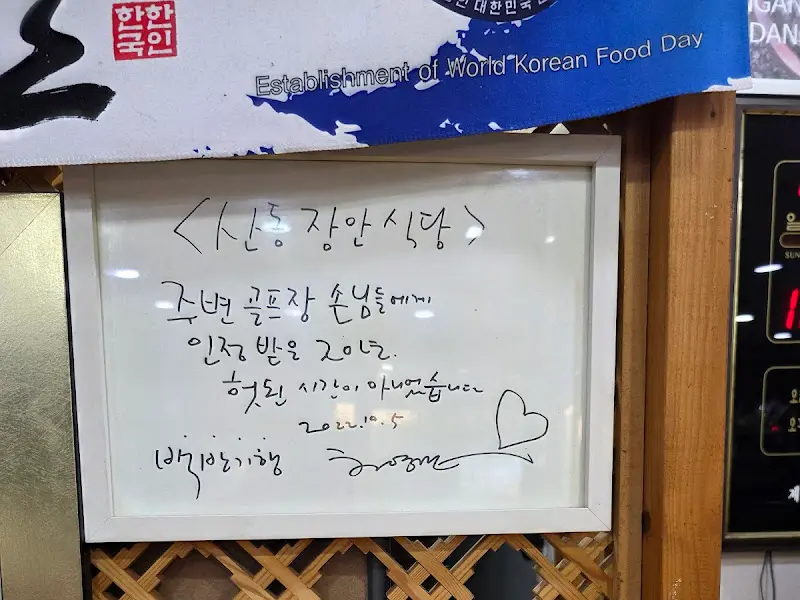 한한
국인
대한민국
Establishment of World Korean Food Day
<산동 장안 식당>
주변 골프장 손님들에게
인정 받은 20년.
헛된 시간이 아니었습니다
2022.10.5
백반기행
SUN